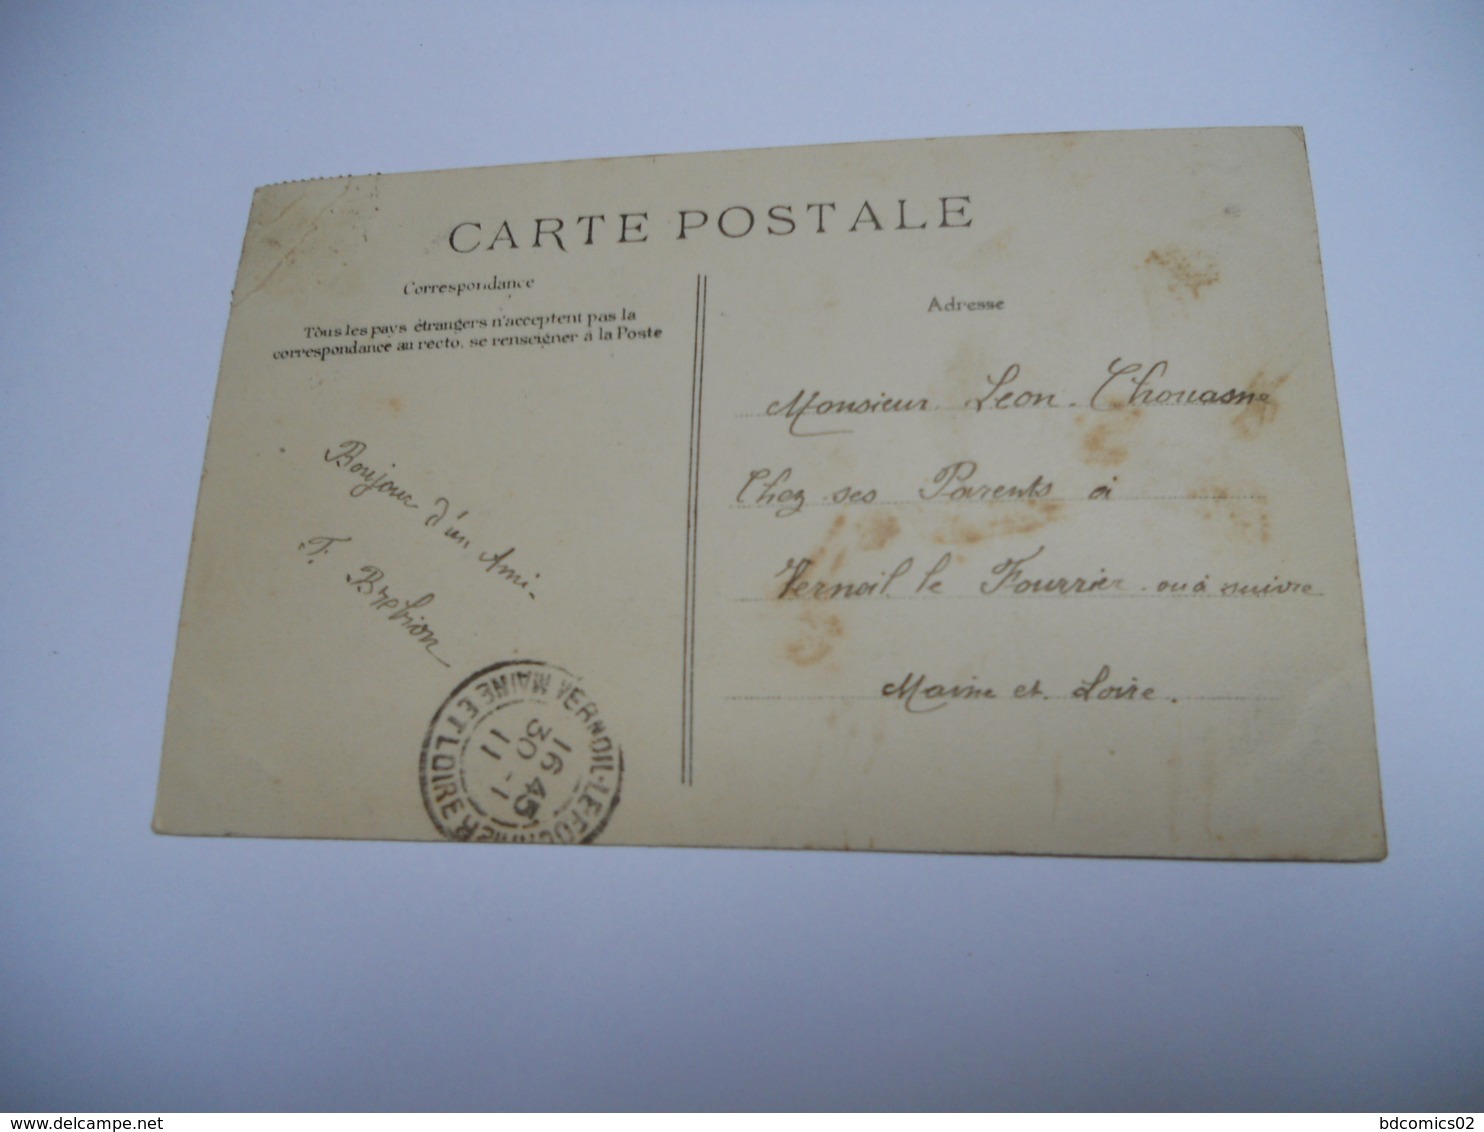 CARTE POSTALE
Correspondance
Tous les pays étrangers n'acceptent pas la
correspondance au recto, se renseigner à la Poste
Bonjour d'un Ami-
T. Brebion
VERNOIL-LE FOURRIER
MAINE ET LOIRE
16 45
30 - 1
11
Adresse
Monsieur Leon Chouasne
Chez ses Parents à
Vernoil le Fourrier ou à suivre
Maine et Loire.
www.delcampe.net
bdcomics02